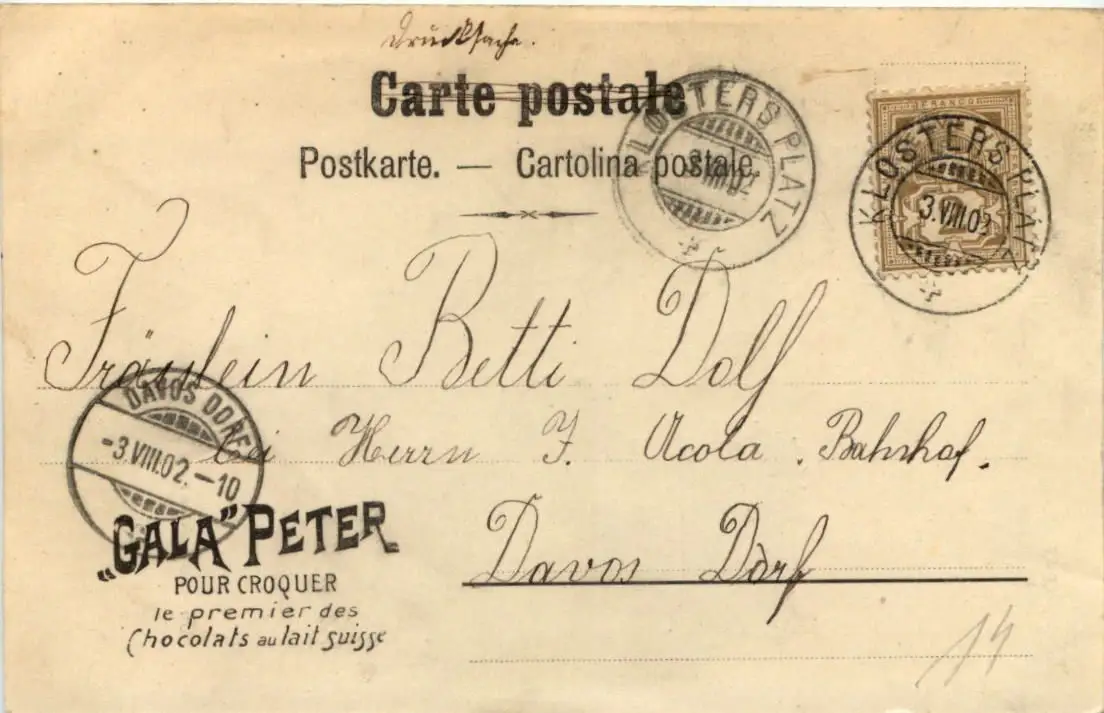 Drucksache.
Carte postale
Postkarte. — Cartolina postale.
KLOSTERS PLATZ
3.VIII.02
FRANCO
KLOSTERS PLATZ
3.VIII.02
Fräulein Betti Dolf
bei Herrn J. Acola. Bahnhof.
Davos Dorf
DAVOS DORF
-3.VIII.02.-10
„GALA" PETER
POUR CROQUER
le premier des
Chocolats au lait suisse
14